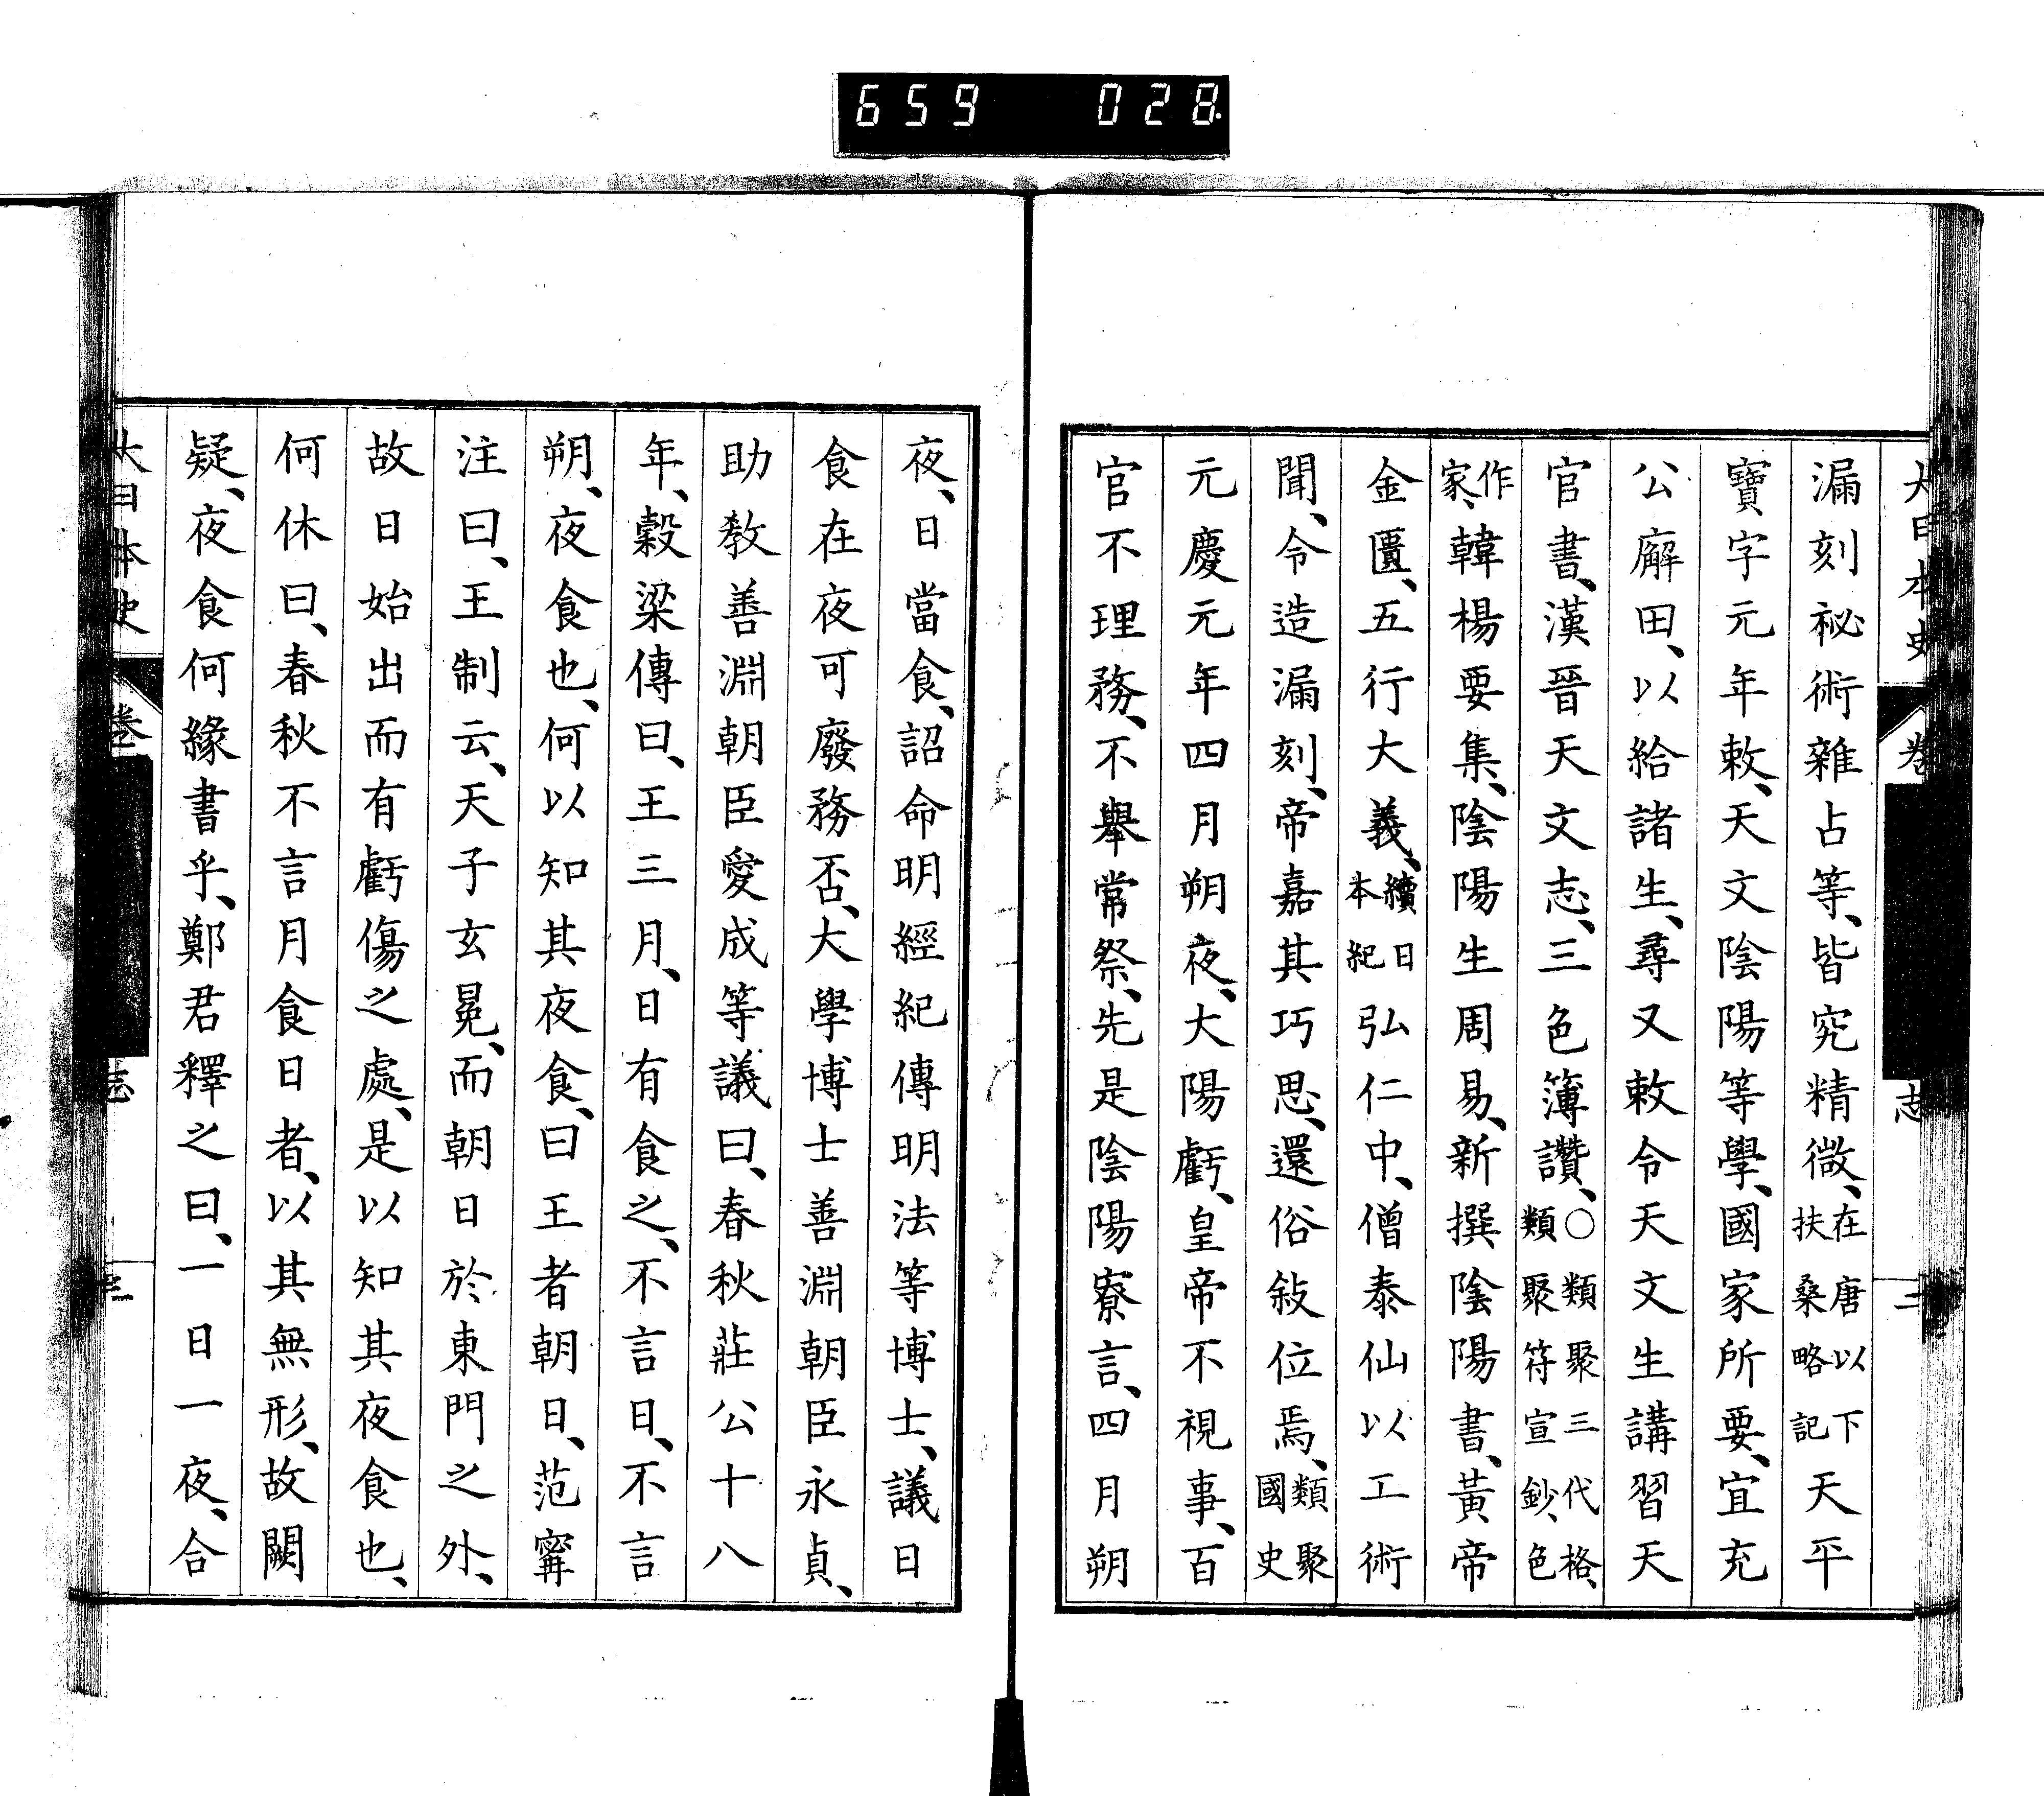 659 028
大日本史 卷 志 二
漏刻祕術雜占等、皆究精微、在唐以下扶桑略記天平
寶字元年敕、天文陰陽等學、國家所要、宜充
公廨田、以給諸生、尋又敕令天文生講習天
官書、漢晉天文志、三色簿讚、○類聚三代格、類聚符宣鈔、色
作家、韓楊要集、陰陽生周易、新撰陰陽書、黃帝
金匱、五行大義、續日本紀弘仁中、僧泰仙以工術
聞、令造漏刻、帝嘉其巧思、還俗敍位焉、類聚國史
元慶元年四月朔夜、大陽虧、皇帝不視事、百
官不理務、不舉常祭、先是陰陽寮言、四月朔
夜、日當食、詔命明經紀傳明法等博士、議日
食在夜可廢務否、大學博士善淵朝臣永貞、
助教善淵朝臣愛成等議曰、春秋莊公十八
年、穀梁傳曰、王三月、日有食之、不言日、不言
朔、夜食也、何以知其夜食、曰王者朝日、范甯
注曰、王制云、天子玄冕、而朝日於東門之外、
故日始出而有虧傷之處、是以知其夜食也、
何休曰、春秋不言月食日者、以其無形、故闕
疑、夜食何緣書乎、鄭君釋之曰、一日一夜、合
大日本史 卷 志